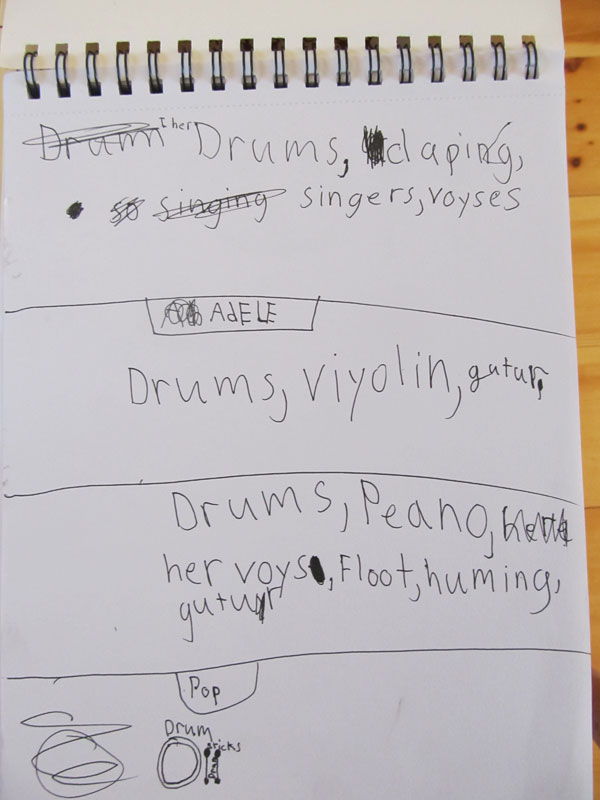 Drum Ther Drums, claping,
so singing singers, voyses
AdELE
Drums, viyolin, gutur,
Drums, Peano,
her voys, Floot, huming,
gutuyr
Pop
Drum
sticks